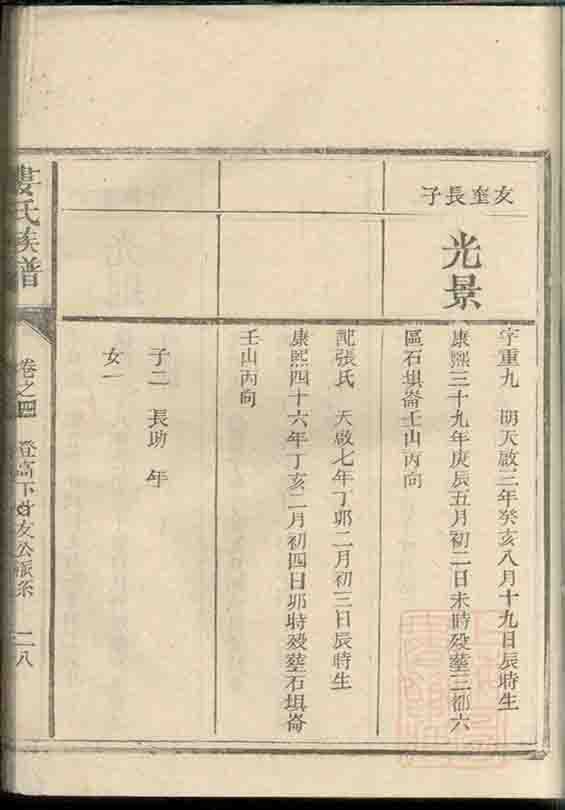 友奎長子
光景
字重九 明天啟三年癸亥八月十九日辰時生
康熙三十九年庚辰五月初二日未時殁塟三都六
區石垻崙壬山丙向
配張氏 天啟七年丁卯二月初三日辰時生
康熙四十六年丁亥二月初四日卯時殁塟石垻崙
壬山丙向
子二 長助 年
女一
婁氏族譜
卷之四 澄高下 友公派系 二八